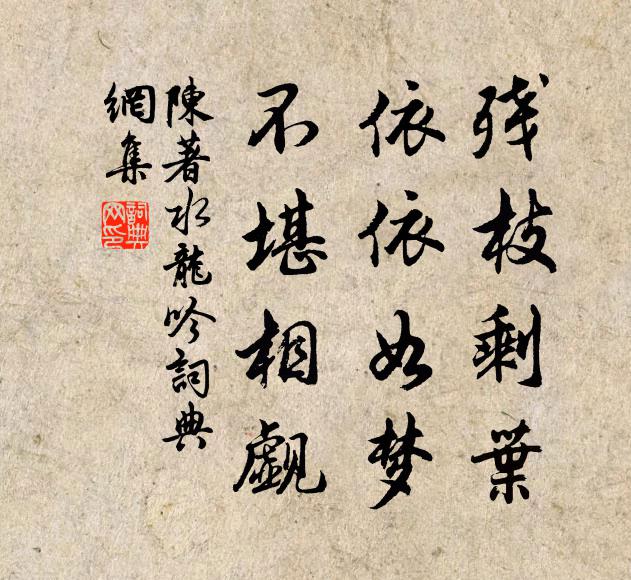 残枝剩葉
依依如梦
不堪相覷
陳著水龍吟詞典
網集
詞典网印